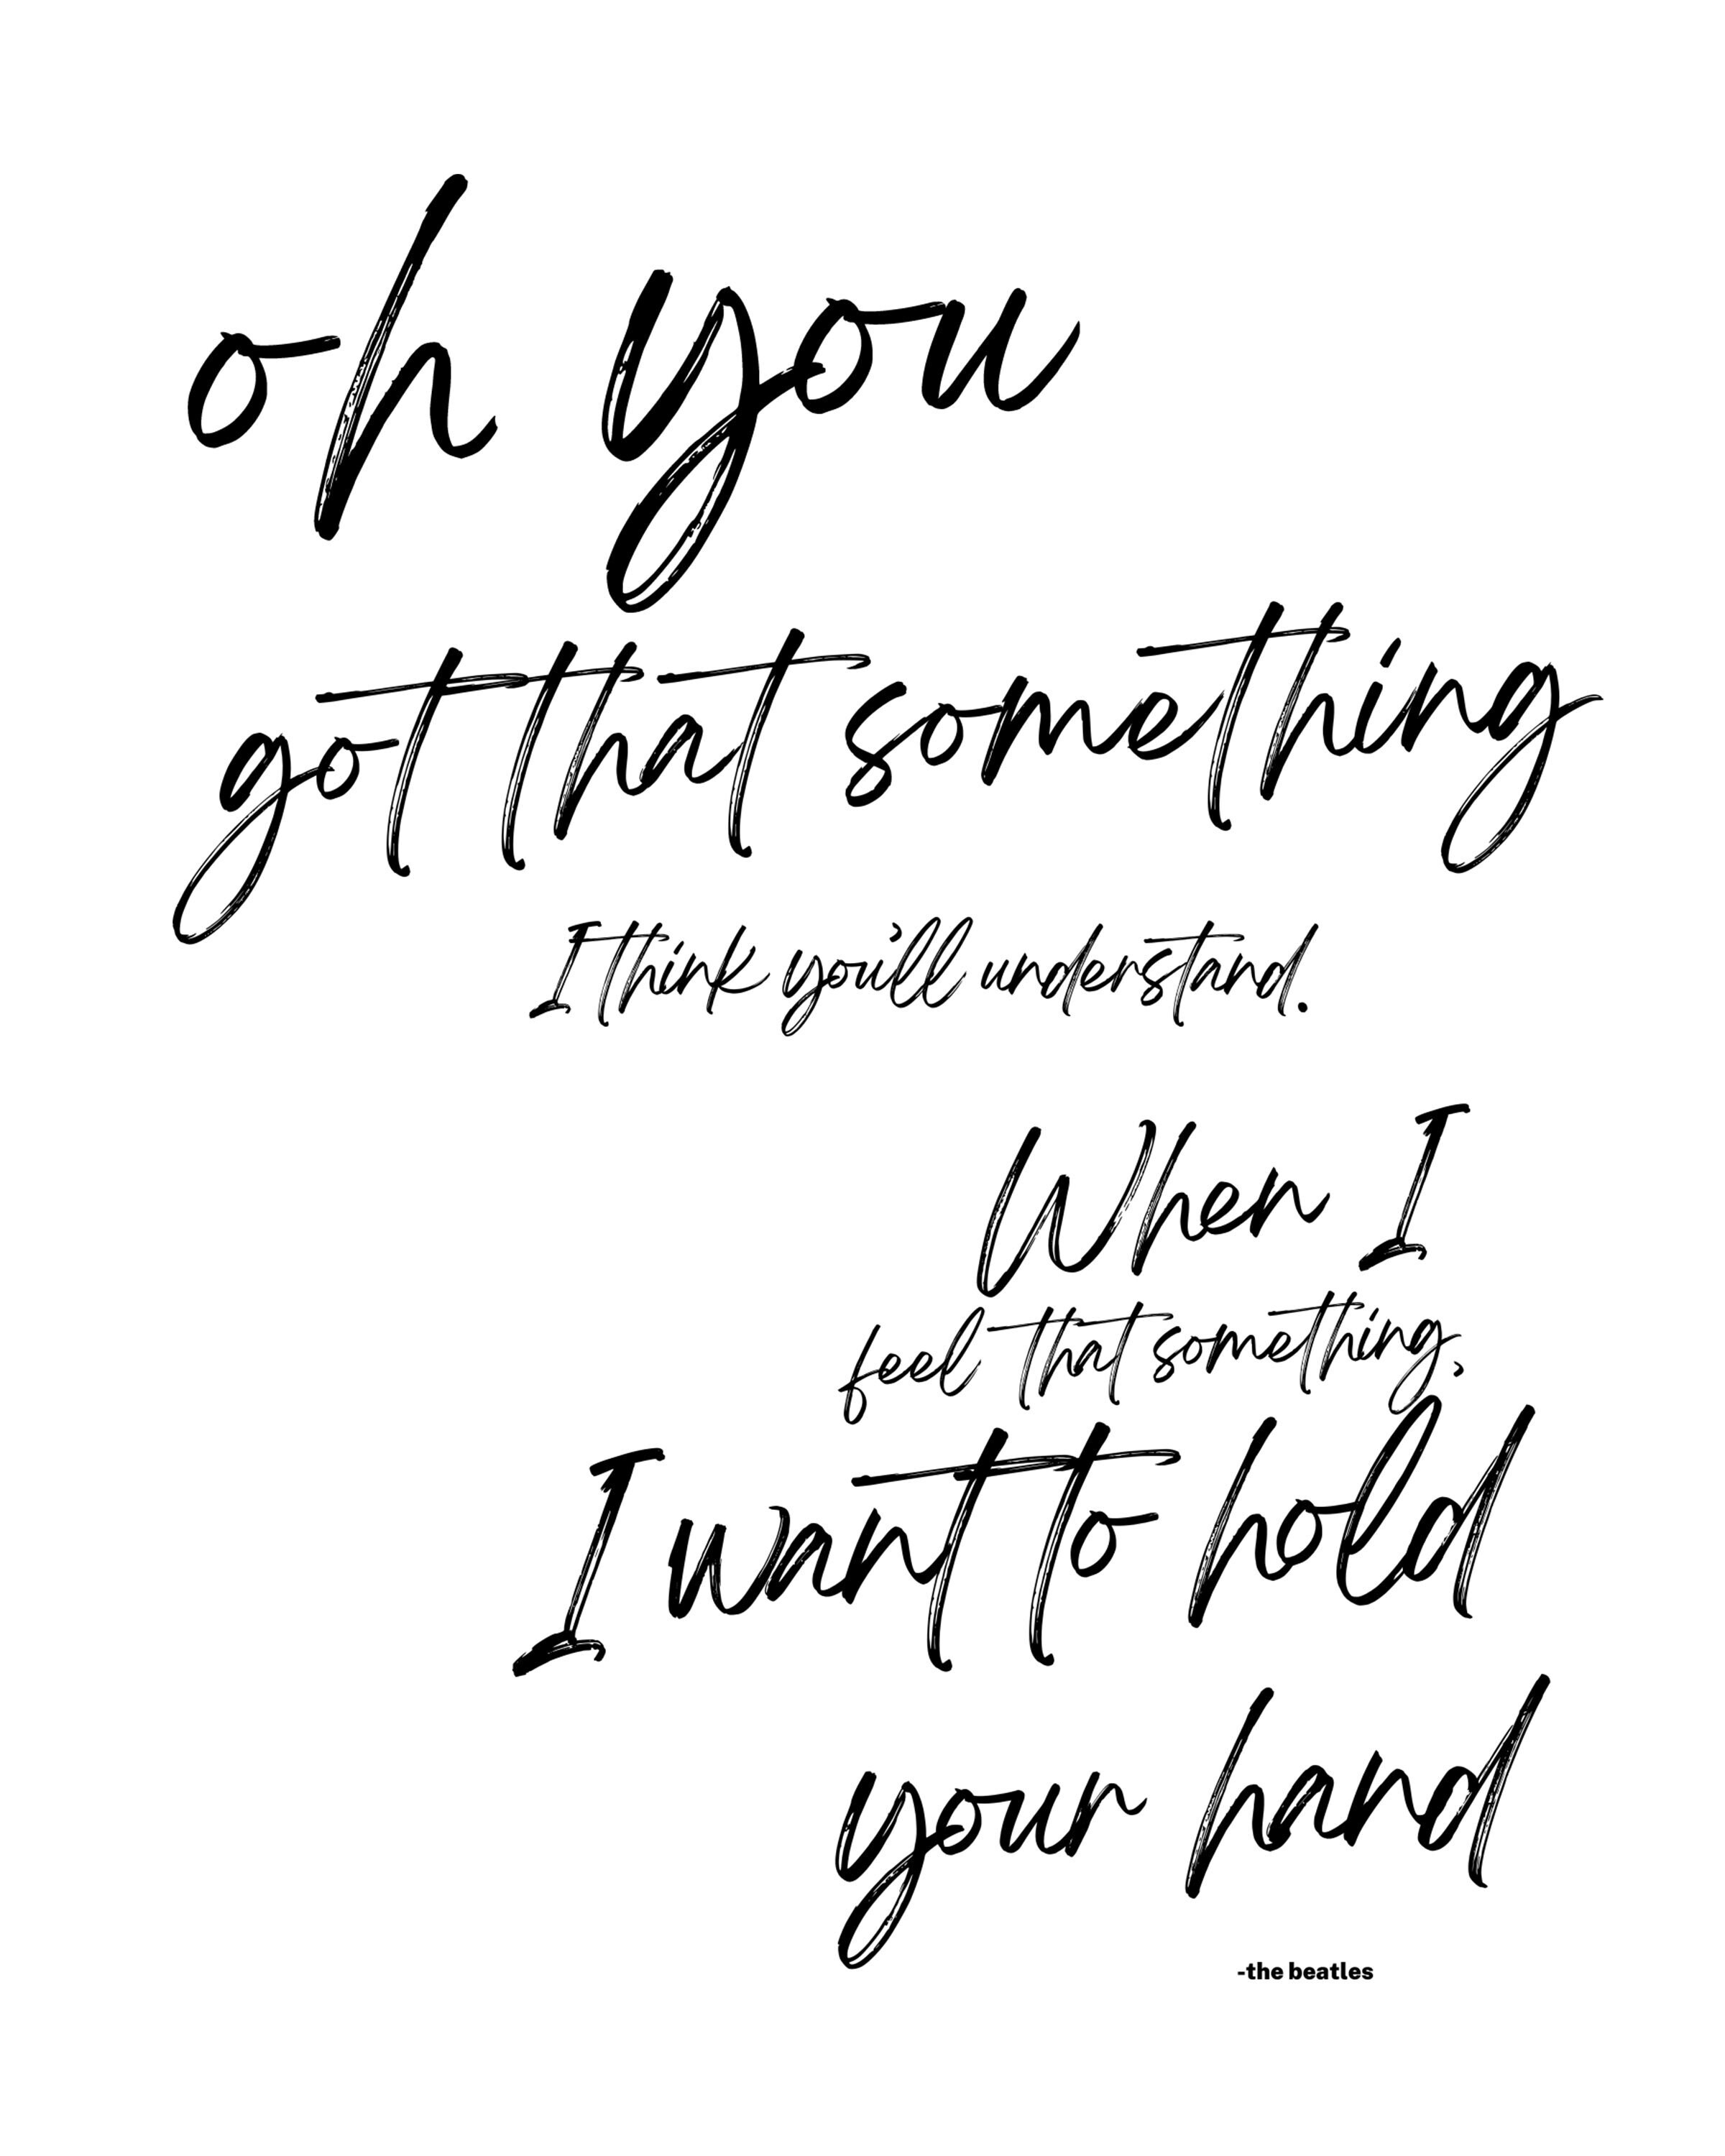 oh you
got that something
I think you'll understand.
When I
feel that something,
I want to hold
your hand
-the beatles